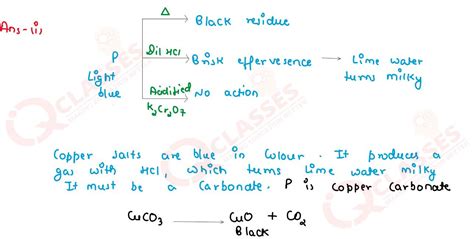 Ans-(i)
Δ
Black residue
P
Dil HCl
Brisk effervesence → Lime water
Light
turns milky
blue
Acidified
No action
K₂Cr₂O₇
Copper salts are blue in colour. It produces a
gas with HCl, which turns lime water milky
It must be a Carbonate. P is copper carbonate
CuCO₃ → CuO + CO₂
Black
IQ CLASSES
IQ CLASSES
IQ CLASSES